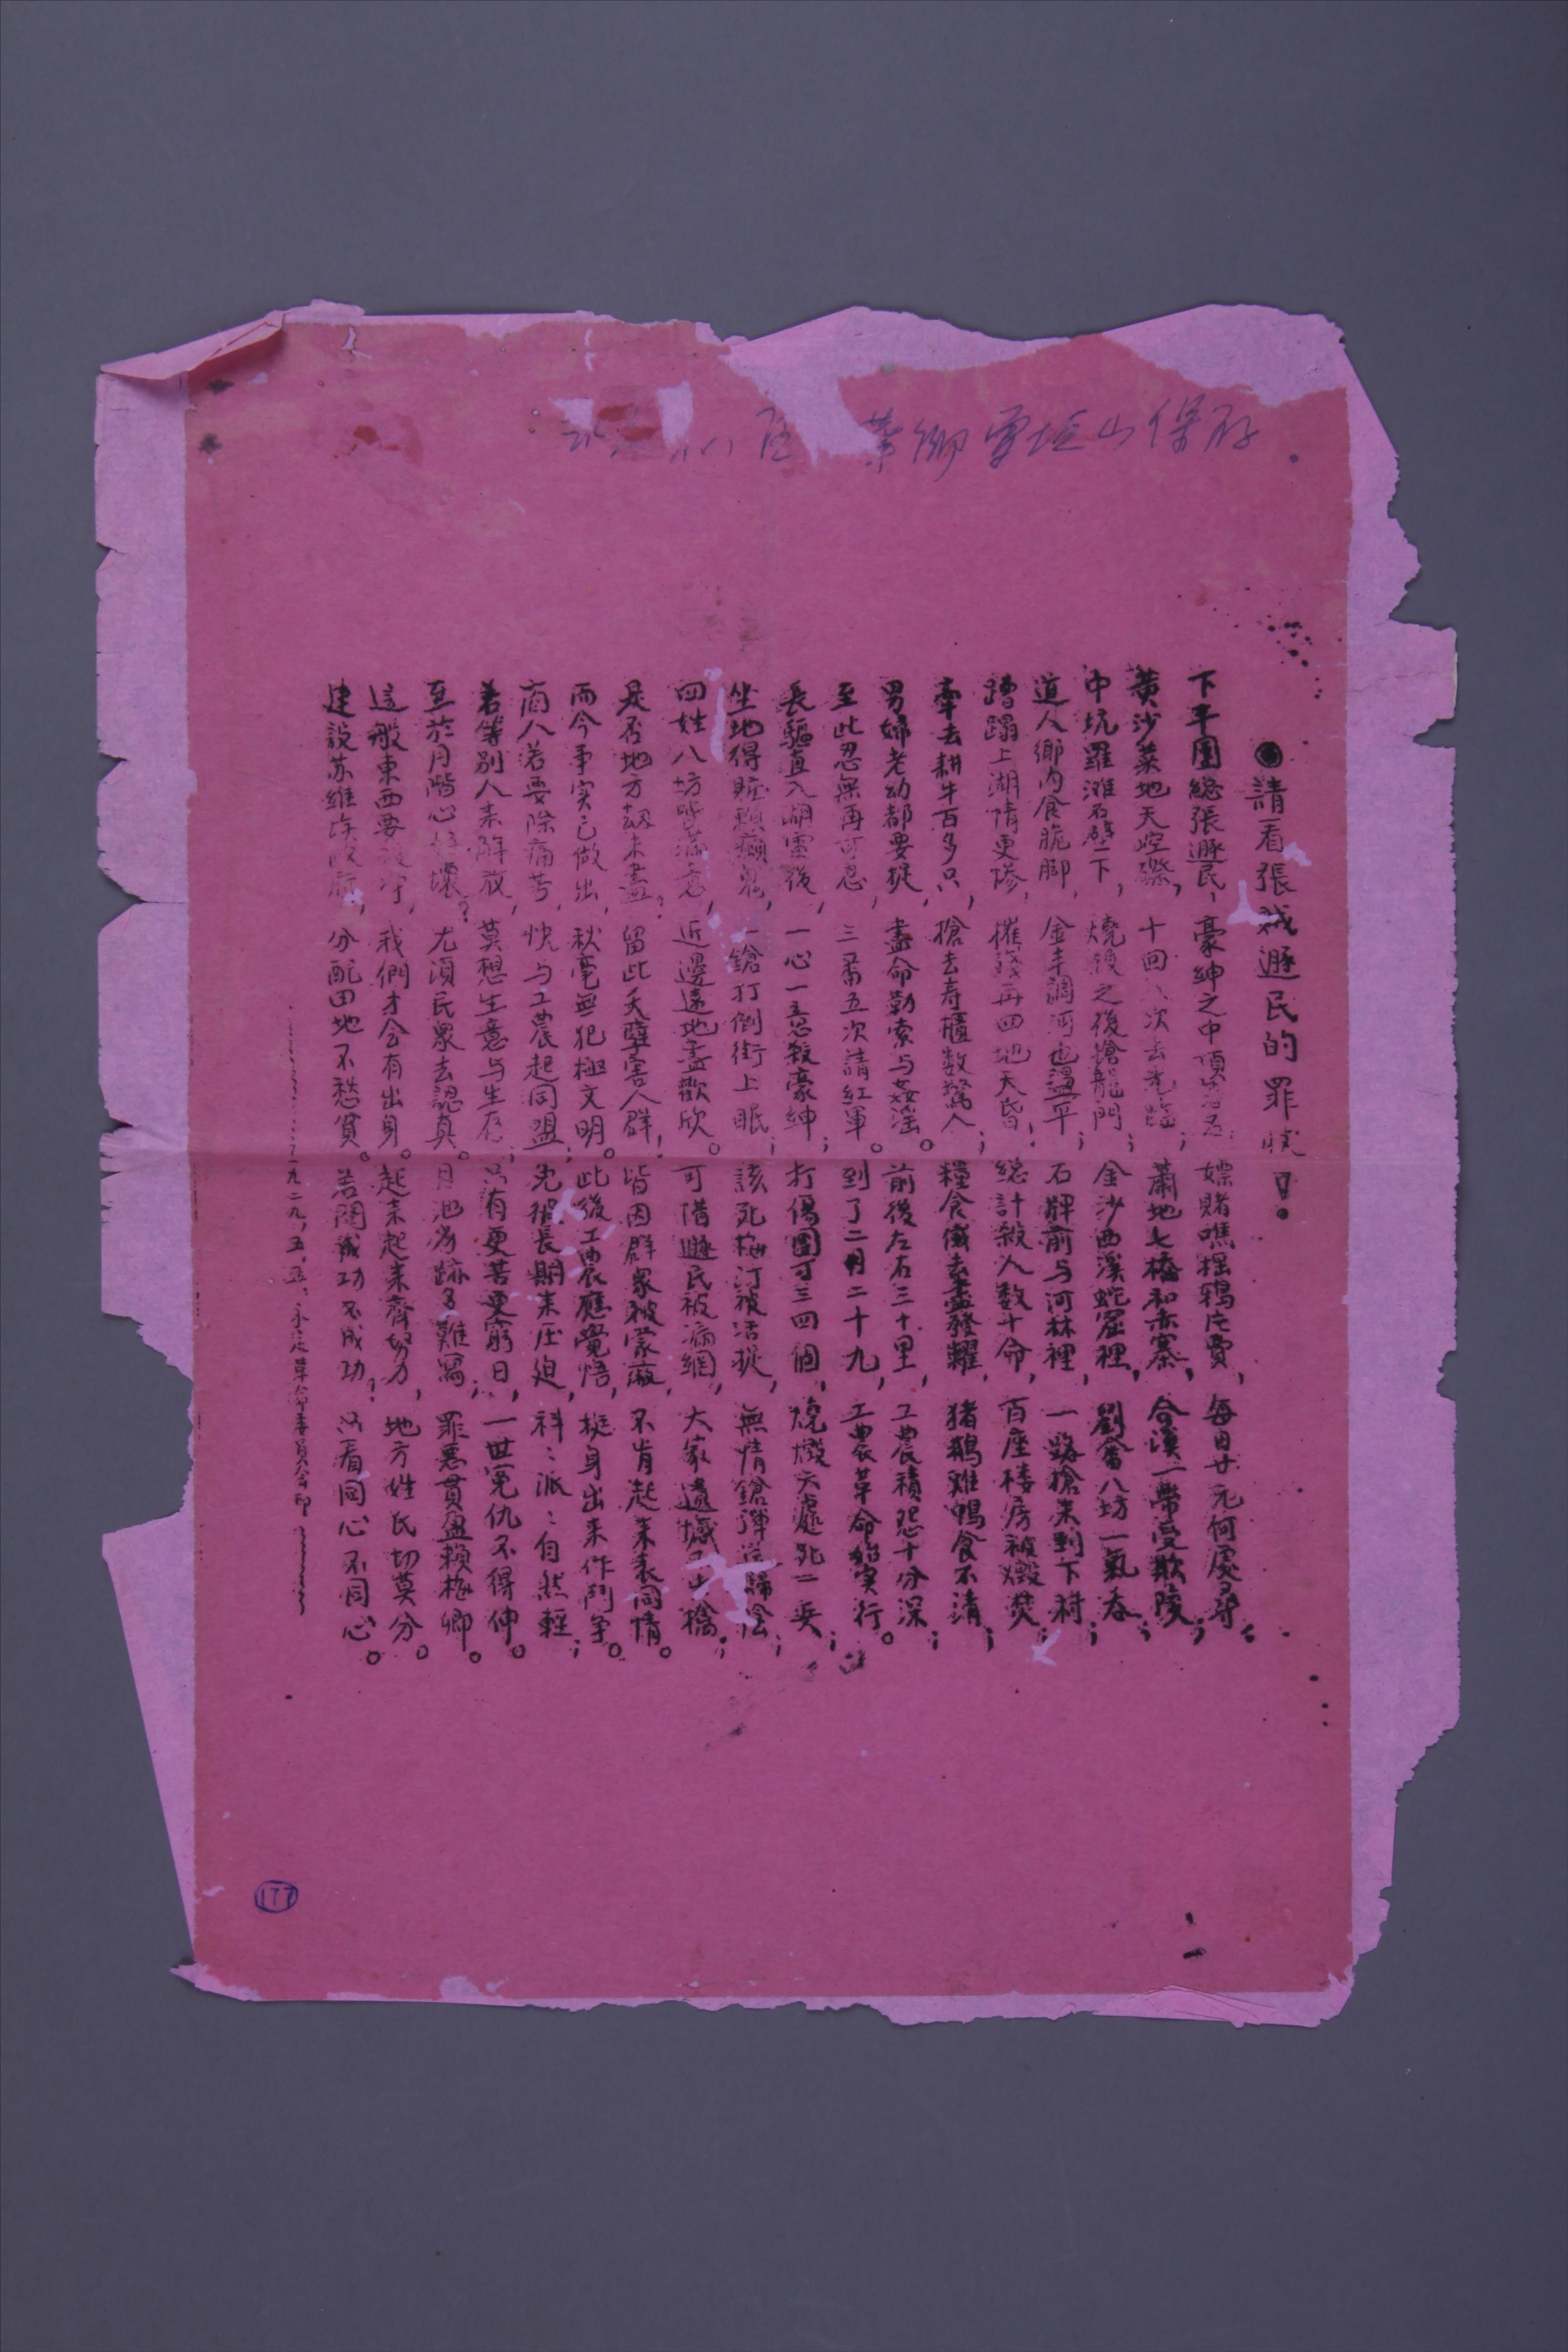 請看張賊遯民的罪狀!
下平團総張遯民,豪紳之中頂 嫖賭嘄揺鴉片賣,每日廿元何處尋;
黃沙菜地天 ,十回八次去 ;蕭地七橋和赤寨,合溪一帶受欺陵;
中坑羅灘石壁下,燒殺之後搶龍門;金沙西溪蛇窟裡,劉畬八坊一氣吞;
道人鄉內食脆脚,金丰調河也盪平;石牌前与河林裡,一路搶來到下村;
蹧蹋上湖情更慘,摧殘再四地天昏;総計殺人数十命,百座楼房被燬焚;
牽去耕牛百多只,搶去寿櫃数驚人;糧食儎去盡發糶,猪鵝雞鴨食不清;
男婦老幼都要捉,盡命勒索与姦淫。前後左右三十里,工農積怨十分深;
至此忍無再可忍,三番五次請紅軍。到了二月二十九,工農革命始实行。
長驅直入湖雷後,一心一意殺豪紳;打傷團丁三四個,燒燬六處死二 ;
坐地得賍 ,一鎗打倒街上眠;該死梅汀被活捉,無情鎗彈 歸陰;
四姓八坊皆滿意,近邊遠地盡歡欣。可惜遯民被漏網,大家遺憾 擒;
是否地方刼未盡?留此夭孽害人群!皆因群衆被蒙蔽,不肯起來表同情。
而今事实已做出,秋毫無犯極文明。此後工農應覺悟,挺身出来作鬥争。
商人若要除痛苦,快与工農起同盟;免被長期来压迫,科〻派〻自然輕;
若等別人来解放,莫想生意与生存;只有更苦更窮日,一世冤仇不得伸。
至於月階心 壞?尤須民衆去認真。月池劣跡多難寫,罪悪貫盈賴梅卿。
這般東西要 ,我們才会有出身。起来起来齊努力,地方姓氏切莫分。
建設苏維埃政府,分配田地不愁貧。若問成功不成功?只看同心不同心。
一九二九,五,五,永定革命委員会印
山保存
177